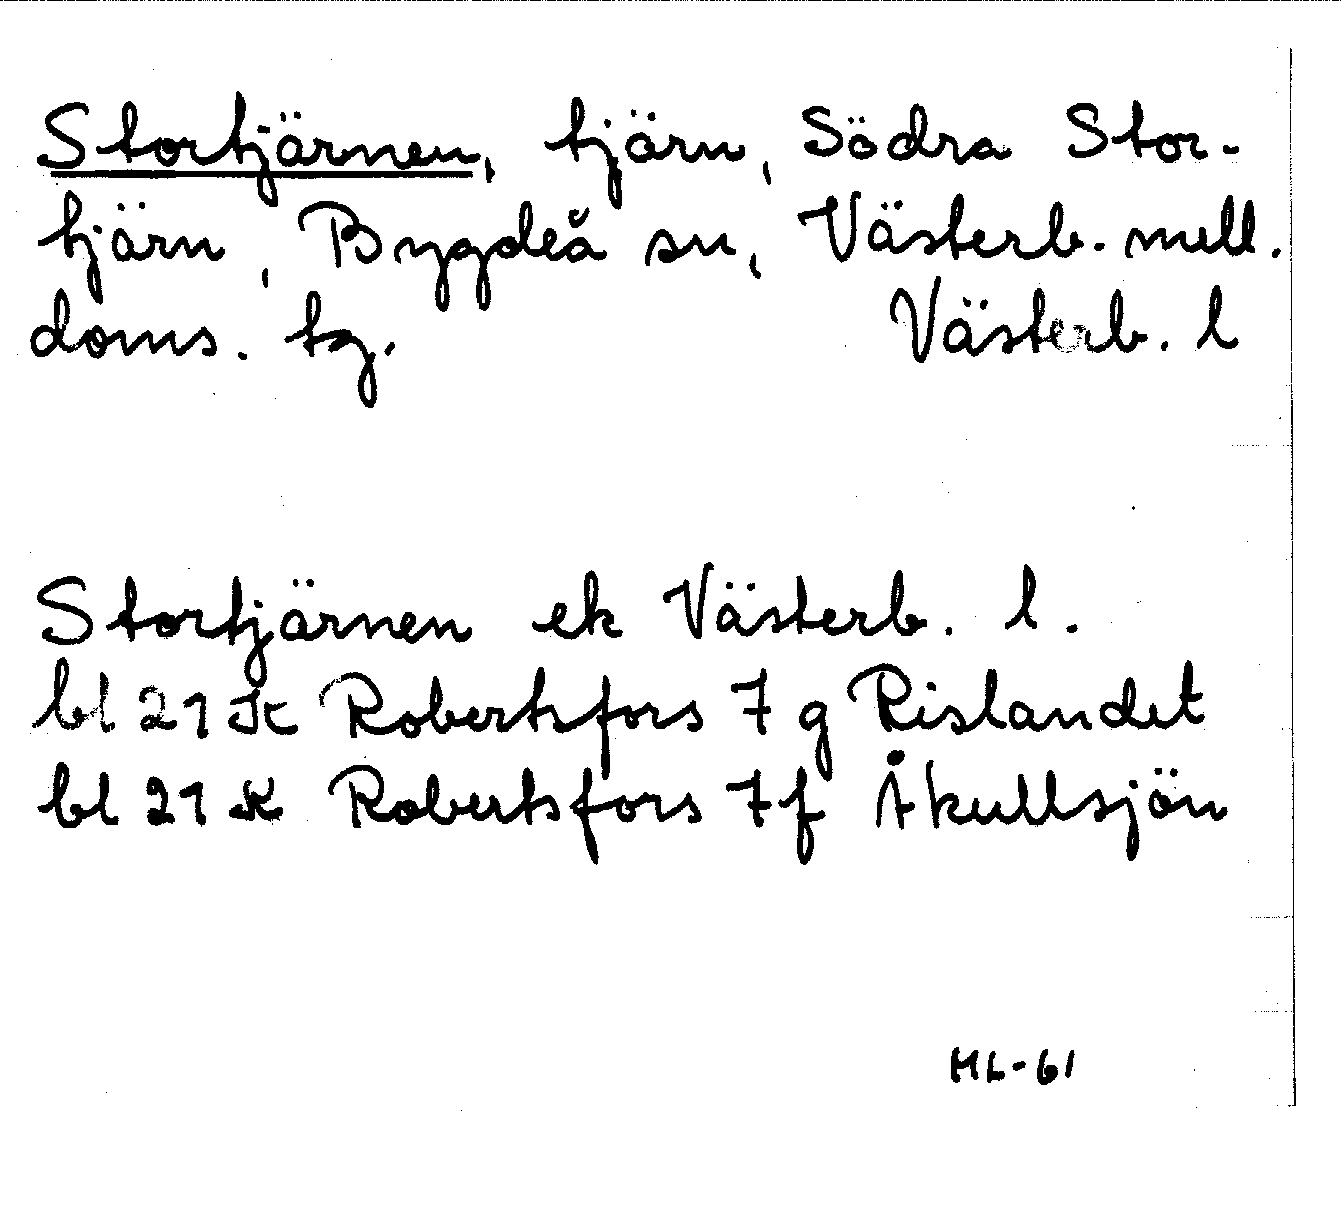 Stortjärnen, tjärn, Södra Stor-
tjärn, Bygdeå sn, Västerb. mell.
doms. tg. Västerb. l
Stortjärnen ek Västerb. l.
bl 21 K Robertsfors 7 g Rislandet
bl 21 K Robertsfors 7 f Åkullsjön
HL-61